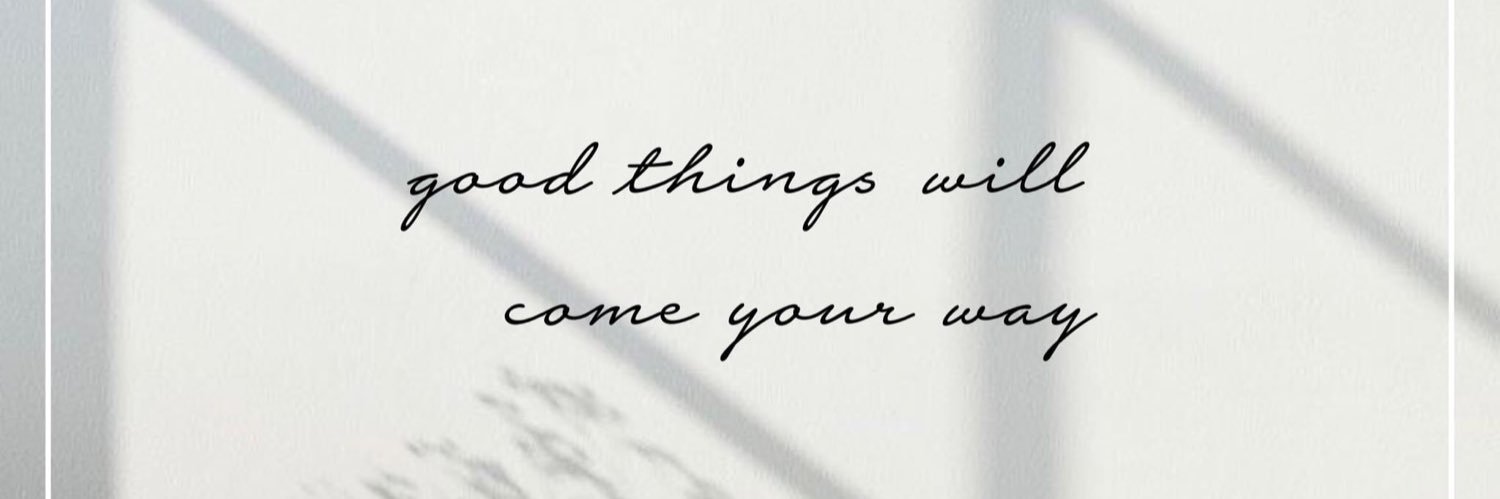 good things will
come your way